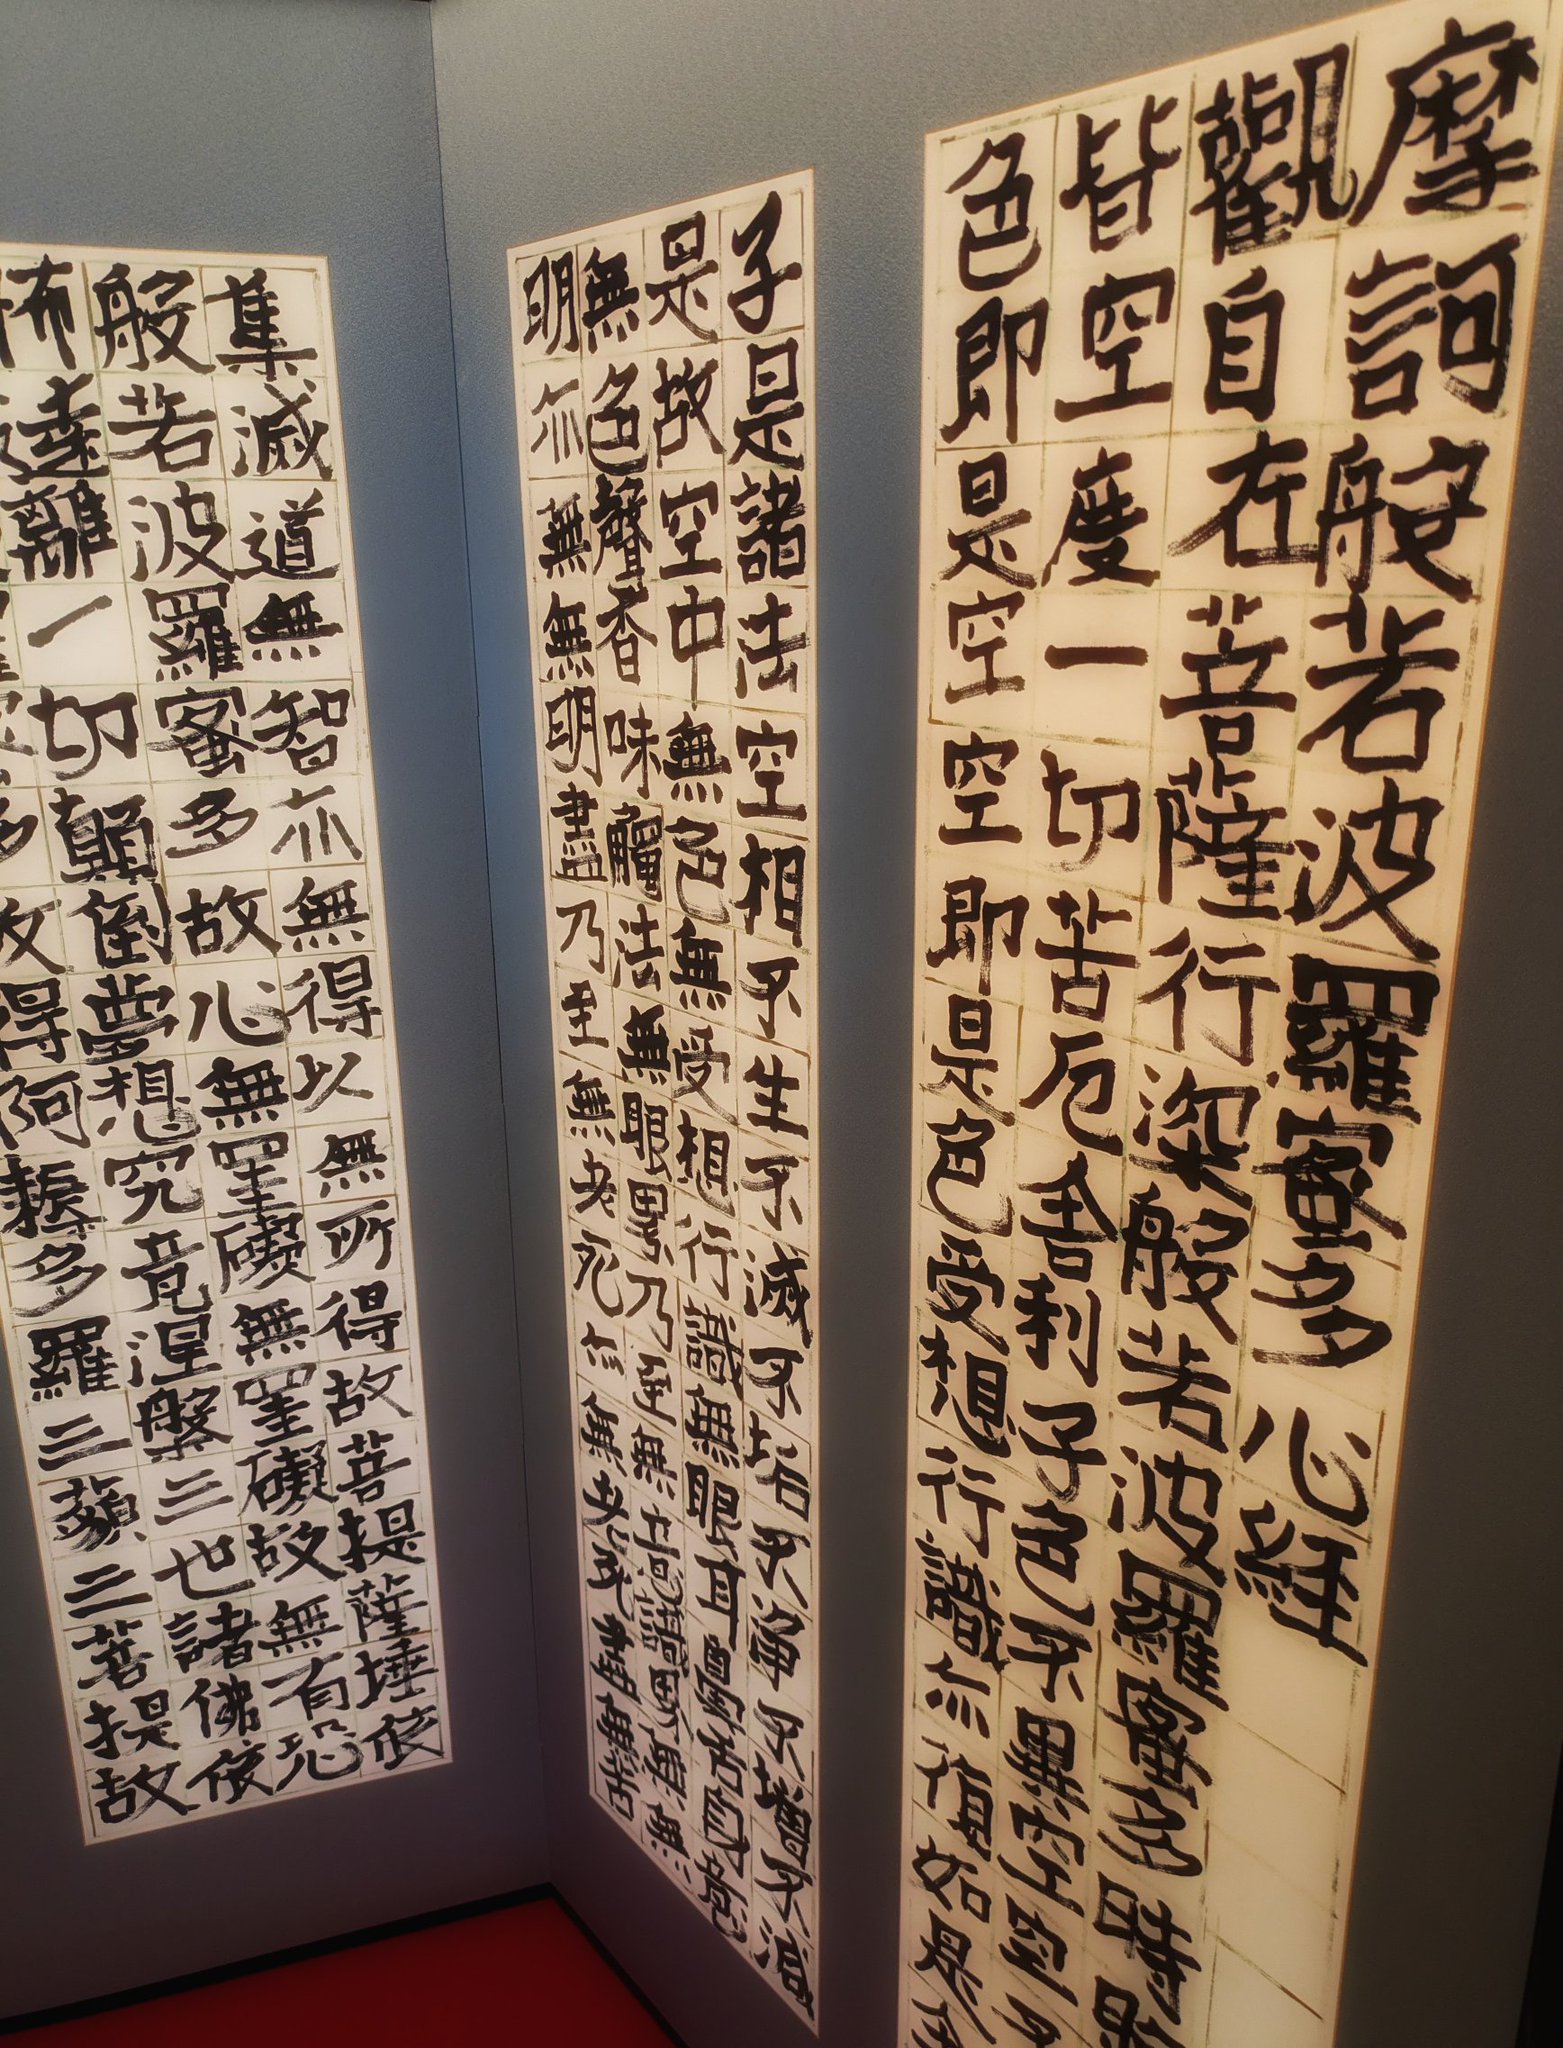 摩訶般若波羅蜜多心経
觀自在菩薩行深般若波羅蜜多時
皆空度一切苦厄舍利子色不異空空不
色即是空空即是色受想行識亦復如是
子是諸法空相不生不滅不垢不淨不增不減
是故空中無色無受想行識無眼耳鼻舌身意
無色聲香味觸法無眼界乃至無意識界無無
明亦無無明盡乃至無老死亦無老死盡無苦
集滅道無智亦無得以無所得故菩提薩埵依
般若波羅蜜多故心無罣礙無罣礙故無有恐
怖遠離一切顛倒夢想究竟涅槃三世諸佛依
多故得阿耨多羅三藐三菩提故